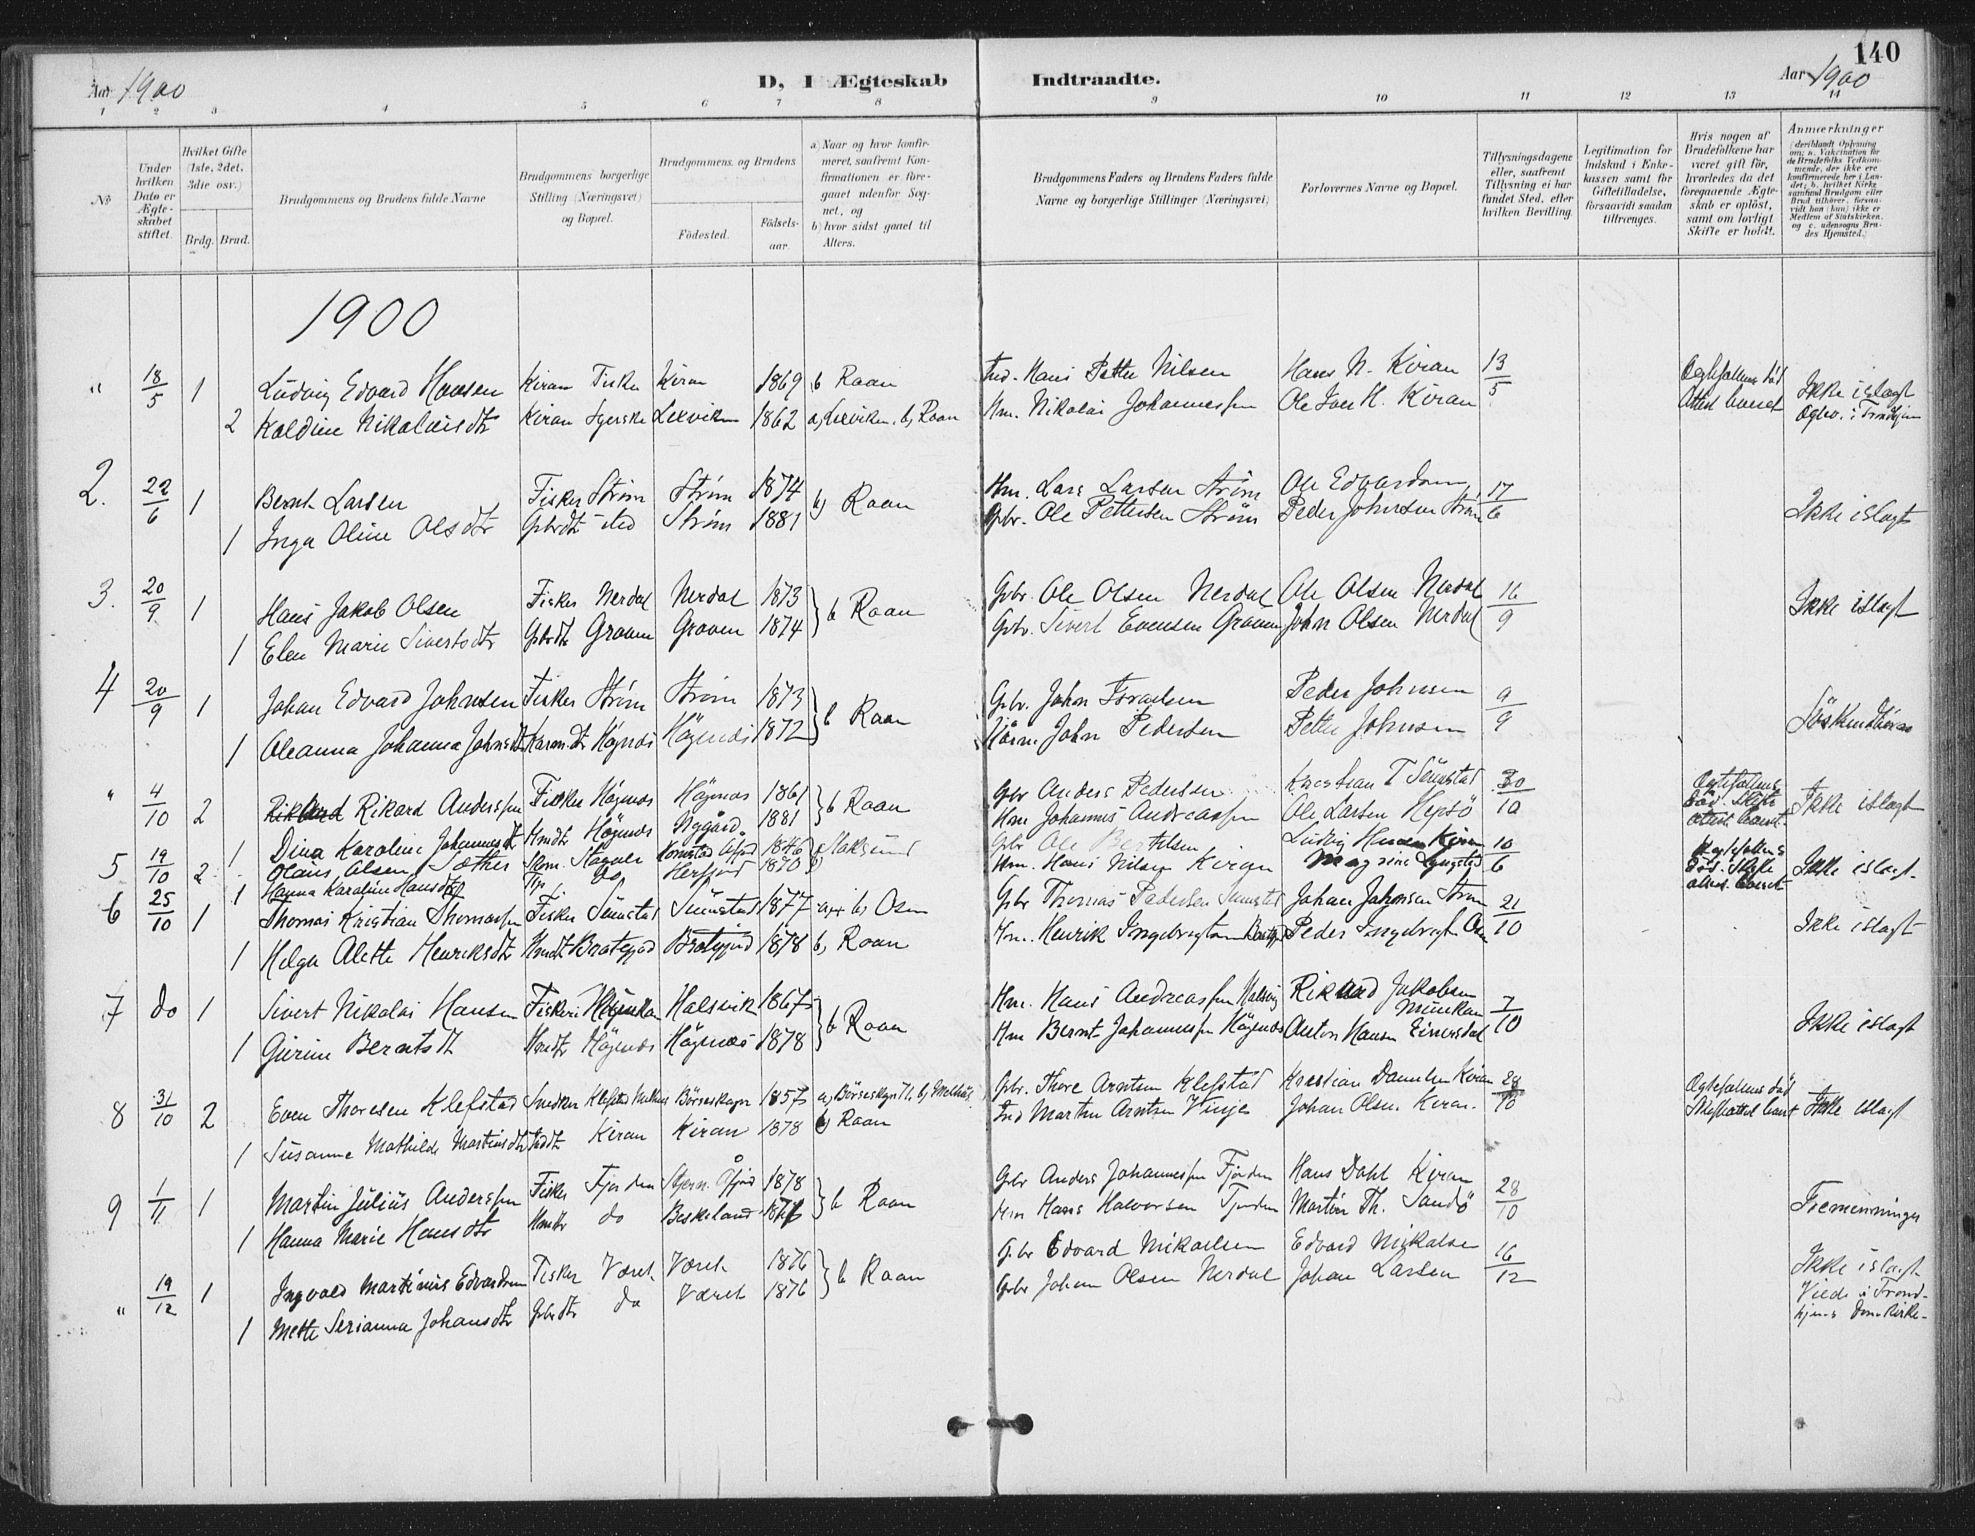 140
Aar 1900
D, I Ægteskab
Indtraadte.
Aar 1900
1 2 3 4 5 6 7 8 9 10 11 12 13 14
No
Under hvilken Dato er Ægteskabet stiftet.
Hvilket Gifte (1ste, 2det, 3die osv.)
Brdg. Brud.
Brudgommens og Brudens fulde Navne
Brudgommens borgerlige Stilling (Næringsvei) og Bopæl.
Brudgommens og Brudens
Fødested.
Fødselsaar.
a) Naar og hvor konfirmeret, saafremt Konfirmationen er foregaaet udenfor Sognet, og b) hvor sidst gaaet til Alters.
Brudgommens Faders og Brudens Faders fulde Navne og borgerlige Stillinger (Næringsvei)
Forlovernes Navne og Bopæl.
Tillysningsdagene eller, saafremt Tillysning ei har fundet Sted, efter hvilken Bevilling.
Legitimation for Indskud i Enkekassen samt for Giftetilladelse, forsaavidt saadan tiltrænges.
Hvis nogen af Brudefolkene har været gift før, hvorledes da det foregaaende Ægteskab er opløst, samt om lovligt Skifte er holdt.
Anmærkninger (deriblandt Oplysning om: a. Vakcination for de Brudefolks Vedkommende, der ikke ere konfirmerede her i Landet; b. hvilket Kirkesamfund Brudgom eller Brud tilhører, forsaavidt han (hun) ikke er Medlem af Statskirken, og c. udensogns Brudes Hjemsted.)
1900
" 18/5 1 Ludvig Edvard Hansen Kiran Fisker Kiran 1869 b Roan Ind. Hans Petter Nilsen Hans N. Kiran 13/5 Ikke i slagt
2 Kaldine Nikolaisdtr Kiran Syerske Lexviken 1862 a) Lexviken, b) Roan Hm. Nikolai Johannessen Ole Iver H. Kiran
2. 22/6 1 Bernt Larsen Fisker Strøm Strøm 1874 b) Roan Hm. Lars Larsen Strøm Ole Edvardsen 17/6 Ikke i slagt
1 Inga Oline Olsdtr Gbrdtr sted Strøm 1881 Gbr. Ole Pettersen Strøm Peder Johnsen Strøm
3. 20/9 1 Hans Jakob Olsen Fisker Nerdal Nerdal 1873 b Roan Gbr. Ole Olsen Nerdal Ole Olsen Nerdal 16/9 Ikke i slagt
1 Elen Marie Sivertsdtr Gbrdtr Graven Graven 1874 Gbr. Sivert Evensen Graven John Olsen Nerdal
4 20/9 1 Johan Edvard Johnsen Fisker Strøm Strøm 1873 b Roan Gbr. John Israelsen Peder Johnsen 9/9 Søskendbørn
1 Oleanna Johanna Johnsdtr Høgnæs Høgnæs 1872 John Pedersen Petter Johnsen
" 4/10 2 Rikard Anderssen Fisker Høgnæs Høgnæs 1861 b Roan Gbr Anders Pedersen Kristian T Sumstad 30/10 Ikke i slagt
1 Dina Karoline Johannesdtr Hmdtr Høgnæs Nygård 1881 Hm Johannes Andreassen Ole Larsen Hepsø
5 19/10 2 Olaus Olsen Sæther 1846 Stoksund Gbr Ole Berthsen Ludvig Hansen Kiran 10/6 Ikke i slagt
1 Hanna Karoline Hansdtr do Herfjord 1870 Hm. Hans Nilsen Kiran
6 25/10 1 Thomas Kristian Thomassen Fisker Sumstad Sumstad 1877 b) Osen Gbr Thomas Pedersen Sumstad Johan Johnsen Strøm 21/10 Ikke i slagt
1 Helga Alette Henriksdtr Hmdtr Bratgjod Bratgjod 1878 b) Roan Hm. Henrik Ingebrigtsen Peder Ingebrigtsen
7 do 1 Sivert Nikolai Hansen Fisker Halsvik 1867 b Roan Hm. Hans Andreassen Halsvig Rikard Jakobsen 7/10 Ikke i slagt
1 Gurine Berntsdtr Hmdtr Høgnæs Høgnæs 1878 Hm Bernt Johannessen Høgnæs Anton Hansen Einersdal
8 31/10 2 Even Thoresen Klefstad Snedker Klefstad Melhus Børseskogn 1857 a) Børseskogn b) Melhus Gbr. Thore Arntsen Klefstad Kristian Danielsen Kiran 28/10 Ikke i slagt
1 Susanne Mathilde Martinsdtr Inddtr Kiran Kiran 1878 b) Roan Ind Martin Arntsen Vinje Johan Olsen Kiran.
9 1/11 1 Martin Julius Anderssen Fisker Fjorden Åfjord 1878 b Roan Gbr Anders Johannessen Fjorden Hans Dahl Kiran 28/10 Tremenninger
1 Hanna Marie Hansdtr Hmdtr do Beskeland Hm Hans Halvorsen Fjorden Martin Th. Sandø
" 19/12 1 Ingvald Martinius Edvardsen Fisker Været Været 1876 b Roan Gbr Edvard Mikaelsen Edvard Mikalsen 16/12 Ikke i slagt
1 Mette Serianna Johansdtr Gbrdtr do Været 1876 Gbr Johan Olsen Nerdal Johan Larsen Viede i Trondhjems Domkirke